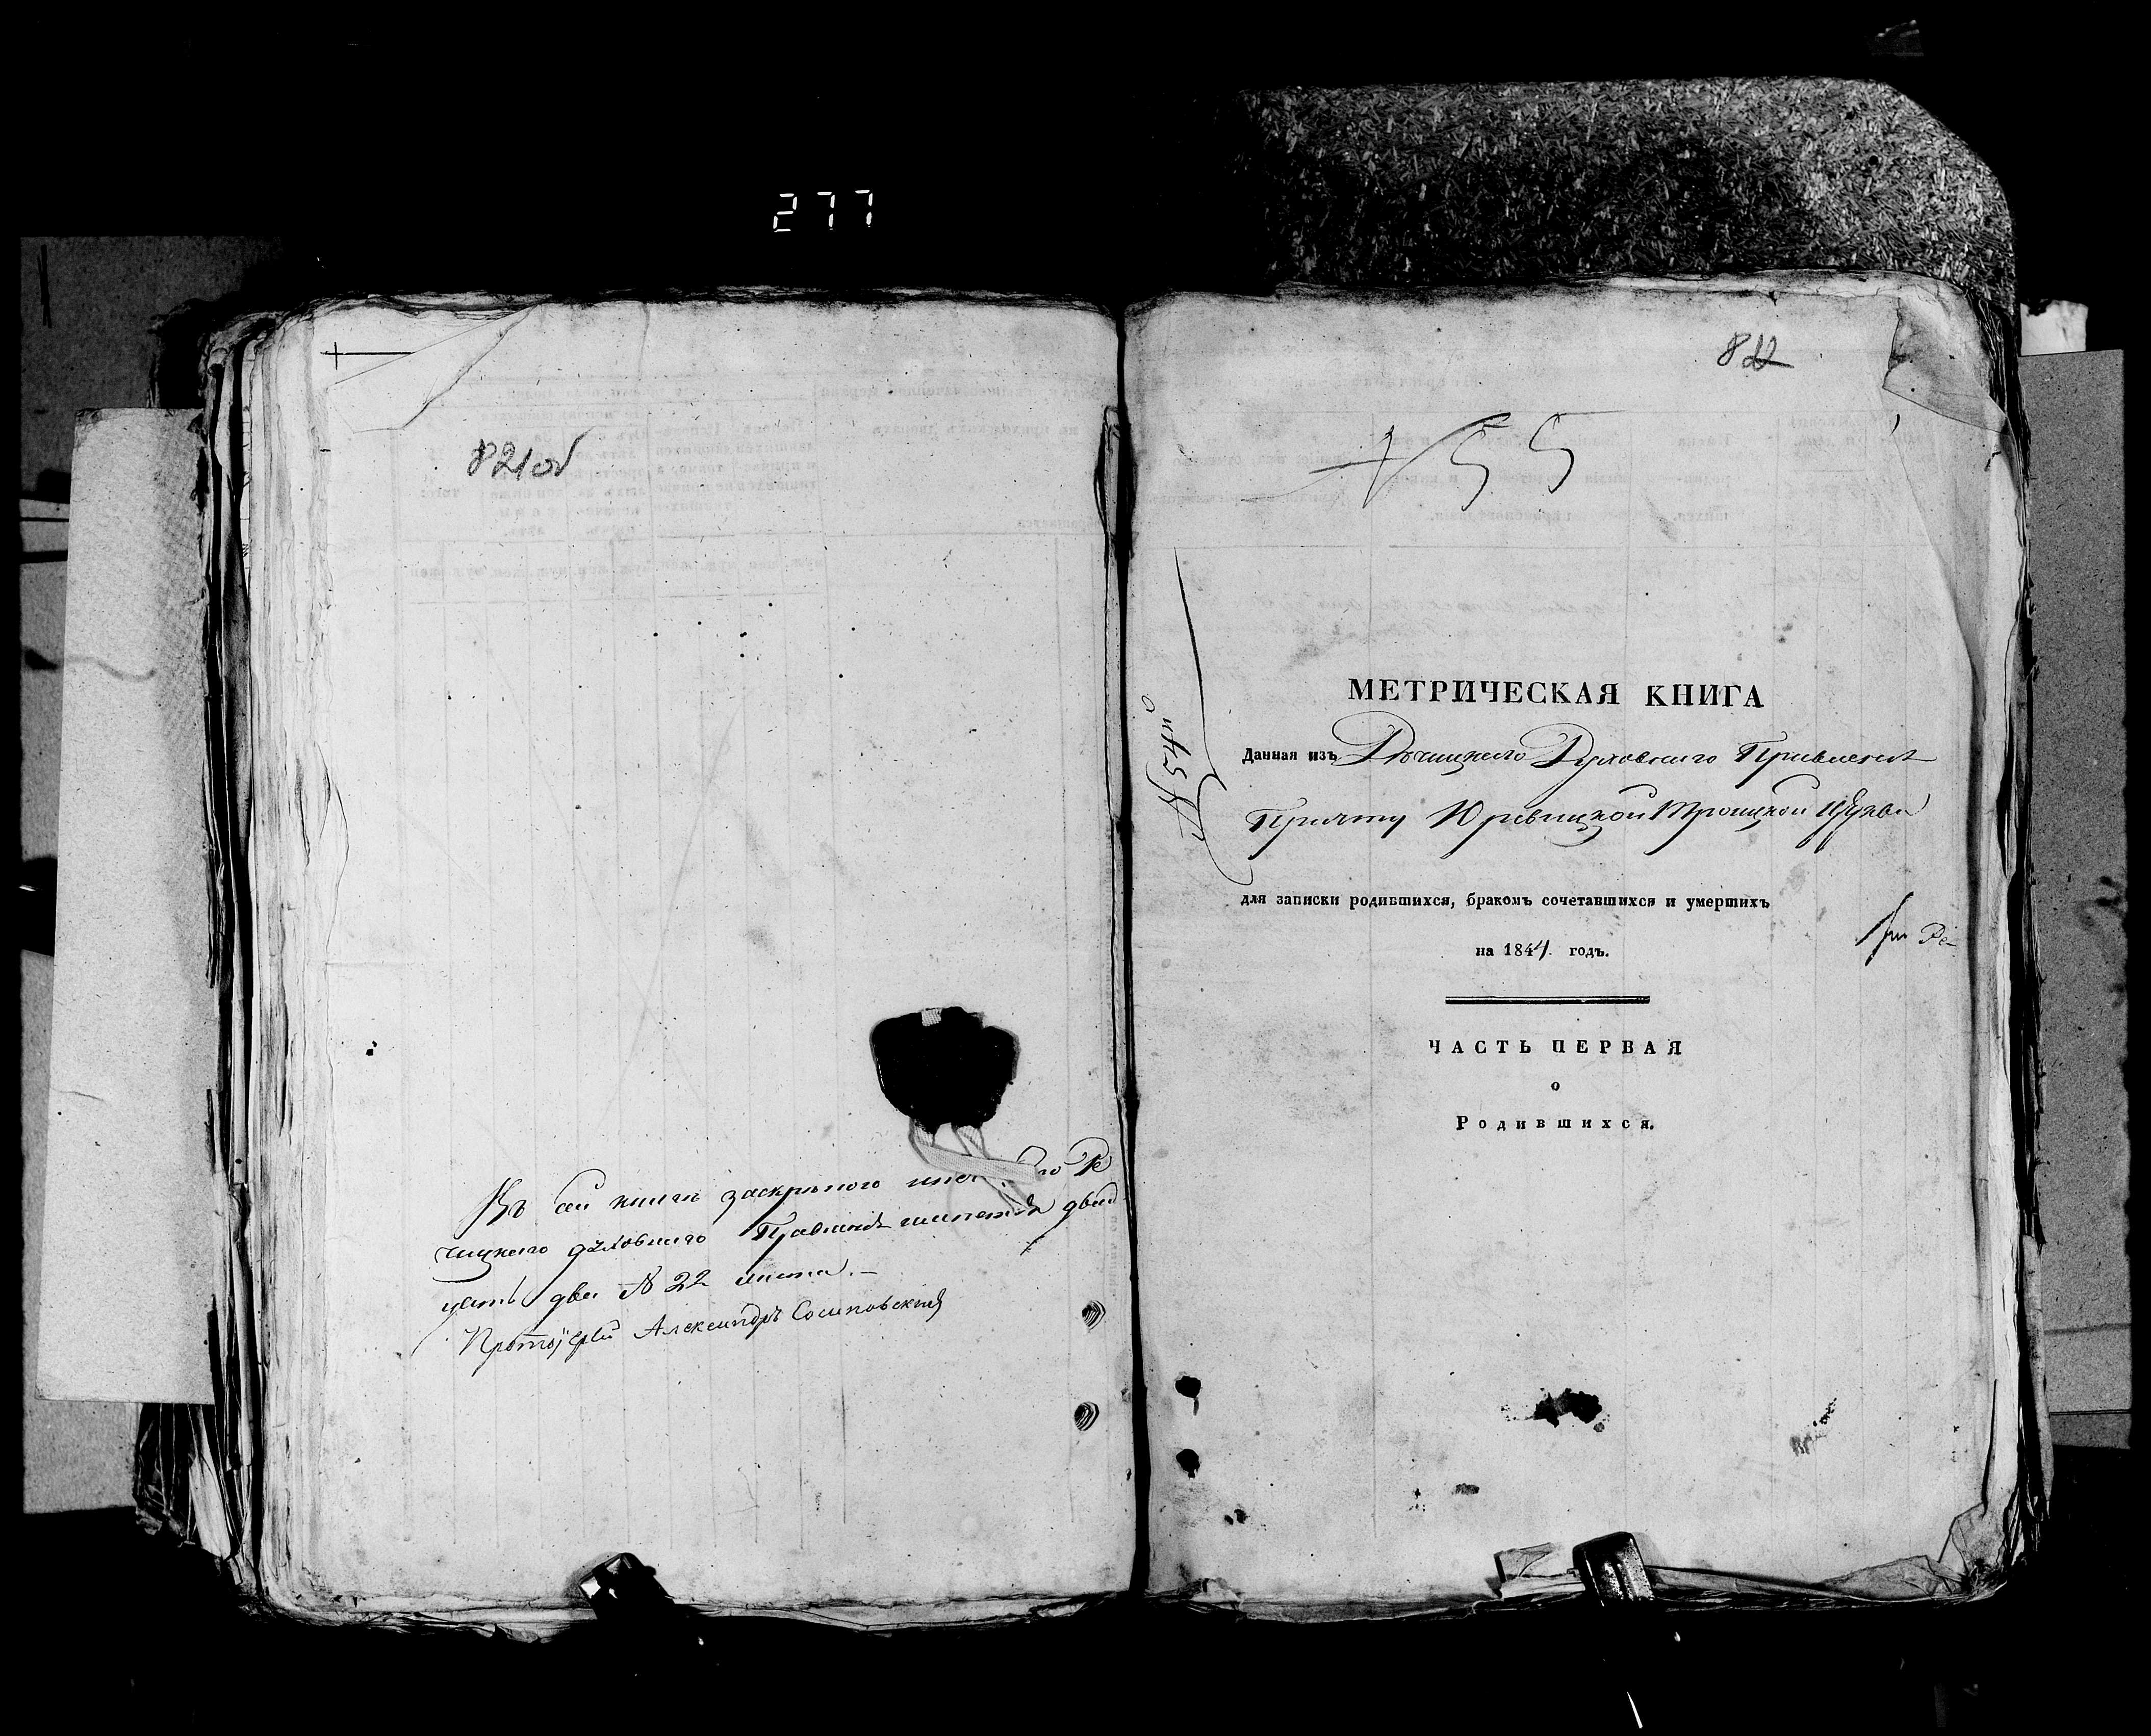 277
821об
Въ сей книги заскрѣпого Ре
чицкаго духовнаго Правленія шнетвя двад
цать два № 22 листа.—
Протоіерей Александръ Сосиновскій
822
55
МЕТРИЧЕСКАЯ КНИГА
Данная изъ Рѣчицкаго Духовнаго Правленія
Причту Юревицкой Троицкой Церкви
для записки родившихся, бракомъ сочетавшихся и умершихъ
на 1844 годъ.
Ре-
ЧАСТЬ ПЕРВАЯ
о
Родившихся.